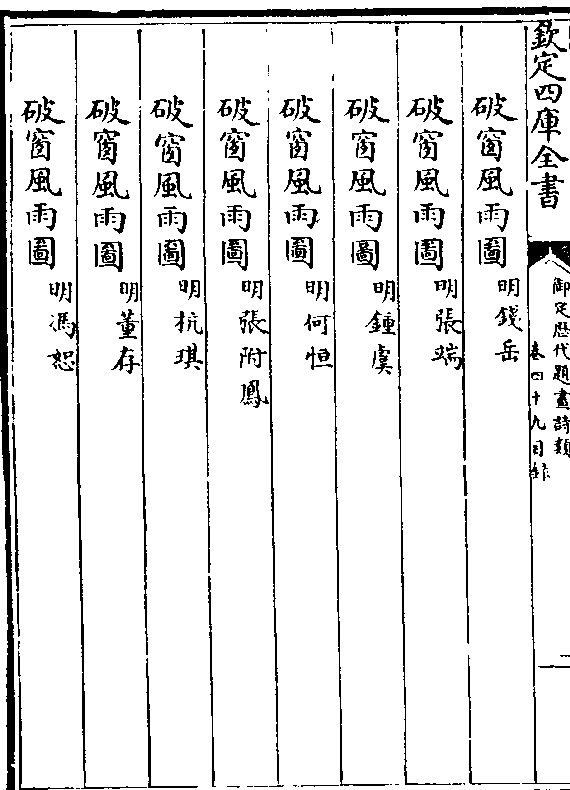 欽定四庫全書
御定歴代題畫詩類
卷四十九目録
二
破窗風雨圖 明錢岳
破窗風雨圖 明張端
破窗風雨圖 明鍾虞
破窗風雨圖 明何恒
破窗風雨圖 明張附鳳
破窗風雨圖 明杭琪
破窗風雨圖 明董存
破窗風雨圖 明馮恕